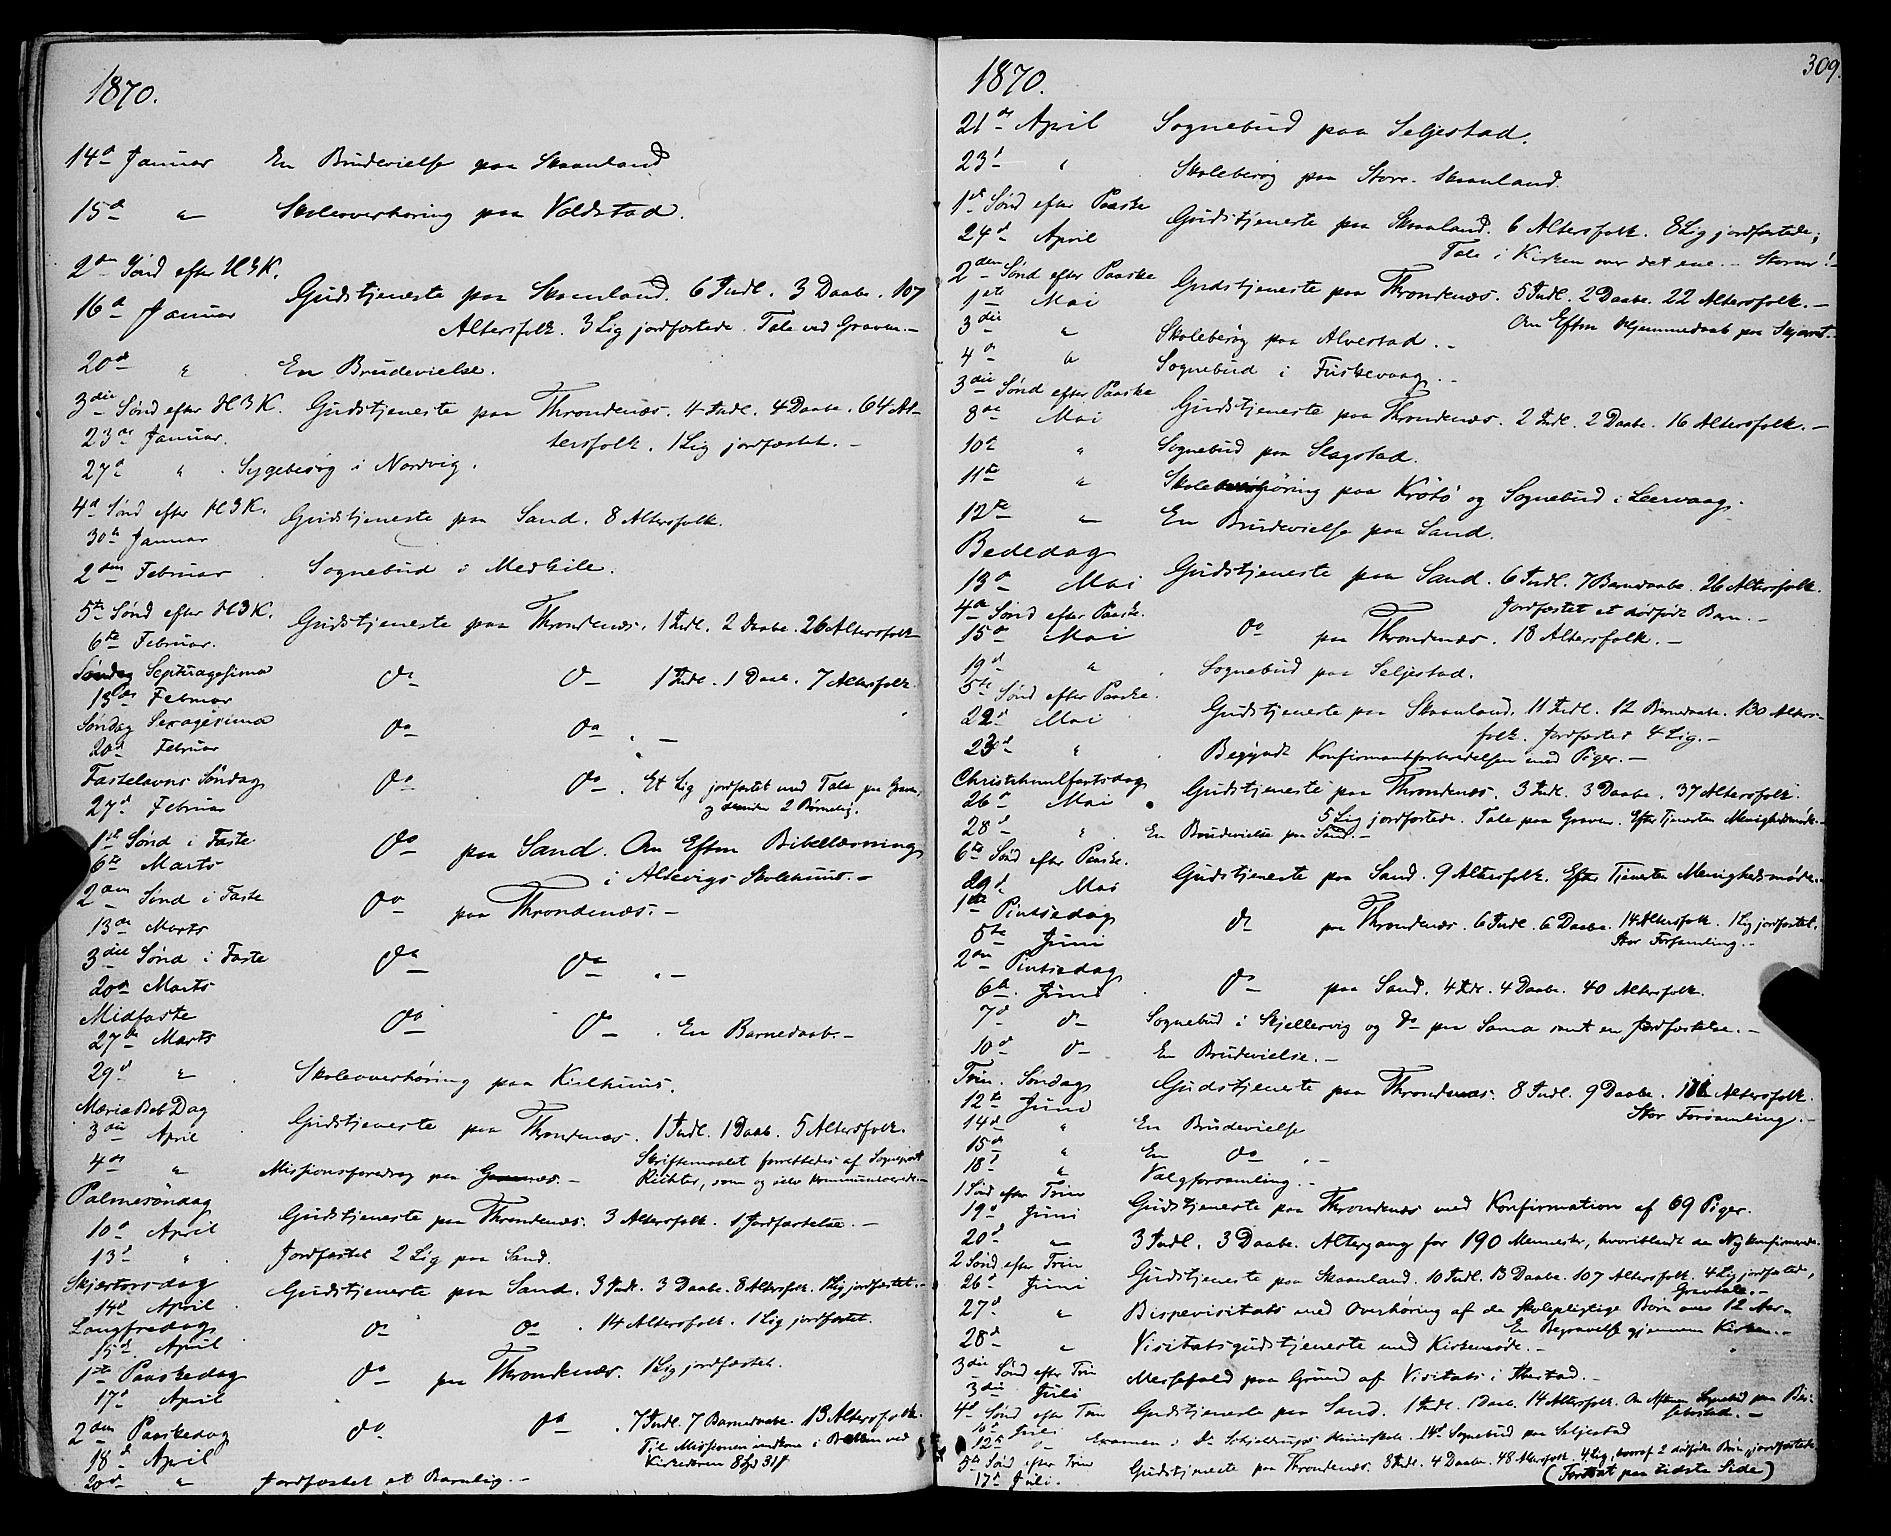 1870.
14d Januar En Brudevielse paa Skaanland
15d " Skoleoverhøring paa Voldstad.
2den Sønd efter H3K.
16d Januar Gudstjeneste paa Skaanland. 6 Indl. 3 Daabe. 107
Altersfolk. 3 Lig jordfæstede. Tale ved Graven.-
20de " En Brudevielse.
3die Sønd efter H3K. Gudstjeneste paa Throndenæs. 4 Indl. 4 Daabe. 64 Al-
23de Januar. tersfolk. 1 Lig jordfæstet.-
27d " Sygebesøg i Nordvig.
4d Sønd efter H3K. Gudstjeneste paa Sand. 8 Altersfolk.
30te Januar
2den Februar Sognebud i
5te Sønd efter H3K. Gudstjeneste paa Throndenæs. 1 Indl. 2 Daabe. 26 Altersfolk
6te Februar.
Søndag Septuagesima do do 1 Indl. 1 Daab. 7 Altersfolk.
13de Februar
Søndag Sexagesima do do . -
20d Februar
Fastelavns Søndag do do . Et Lig jordfæstet med Tale paa Graven,
27d Februar og desuden 2 Børnelig.
1ste Sønd i Faste do paa Sand. Om Eftm Bibellæsning
6te Marts i Aldevigs Skolehuus.-
2den Sønd i Faste do paa Throndenæs.-
13de Marts
3die Sønd i Faste do do . -
20de Marts
Midfaste do do . En Barnedaab.-
27de Marts
29d " Skoleoverhøring paa Kirkhuus.
Mariæ Beb Dag Gudstjeneste paa Throndenæs. 1 Indl. 1 Daab. 5 Altersfolk.
3die April
4de " Missionsforedrag paa Skriftemaalet forrettedes af Sognepræst
Richter, som og selv kommunicerede.-
Palmesøndag Gudstjeneste paa Throndenæs. 3 Altersfolk. 1 Jordfæstelse.-
10d April
13d " Jordfæstet 2 Lig paa Sand.
Skjærtorsdag Gudstjeneste paa Sand. 3 Indl. 3 Daabe. 8 Altersfolk. 1 Lig jordfæstet.-
14d April
Langfredag do do . 14 Altersfolk. 1 Lig jordfæstet.
15d April
1ste Paaskedag do paa Throndenæs. 1 Lig jordfæstet.
17d April
2den Paaskedag do do . 7 Indl. 7 Barnedaabe. 13 Altersfolk.
18d April Til Missionen indkom i Bøssen ved
Kirkedøren 8
20d " Jordfæstet et Barnelig.-
1870. 309.
21de April Sognebud paa Seljestad.
23d " Skolebesøg paa Store-Skaanland.
1ste Sønd efter Paaske Gudstjeneste paa Skaanland. 6 Altersfolk. 8 Lig jordfæstede;
24d April Tale i Kirken over det ene.- Storm!-
2den Sønd efter Paaske Gudstjeneste paa Throndenæs. 5 Indl. 2 Daabe. 22 Altersfolk.-
1ste Mai Om Eftm Hjemmedaab paa
3die " Skolebesøg paa Alvestad.-
4de " Sognebud i Fuskevaag.-
3die Sønd efter Paaske Gudstjeneste paa Throndenæs. 2 Indl. 2 Daabe. 16 Altersfolk.-
8de Mai
10d " Sognebud paa Slagstad.
11te " paa Krøtø og Sognebud i Leervaag.
12te " En Brudevielse paa Sand.
Bededag Gudstjeneste paa Sand. 6 Indl. 7 Barnedaabe. 26 Altersfolk.
13d Mai Jordfæstet et dødfødt Barn.-
4de Sønd efter Paaske.
15de Mai do paa Throndenæs. 18 Altersfolk.-
19d " . Sognebud paa Seljestad.
5te Sønd efter Paaske. Gudstjeneste paa Skaanland. 11 Indl. 12 Barnedaabe. 130 Alters-
22d Mai folk. Jordfæstet 4 Lig.-
23d " . Begyndt Konfirmantforberedelsen med Piger.-
Christihimlfartsdag Gudstjeneste paa Throndenæs. 3 Indl. 3 Daabe. 37 Altersfolk.
26d Mai 5 Lig jordfæstede. Tale paa Graven. Efter Tjenesten Menighedsmøde.-
28d " En Brudevielse paa Sand.-
6te Sønd efter Paaske. Gudstjeneste paa Sand. 9 Altersfolk. Efter Tjenesten Menighedsmøde.-
29d Mai
1ste Pintsedag do paa Throndenæs. 6 Indl. 6 Daabe. 14 Altersfolk. 1 Lig jordfæstet.
5te Juni Stor Forsamling.-
2den Pintsedag do paa Sand. 4 Indl. 4 Daabe. 40 Altersfolk.
6te Juni
7d do Sognebud i Skjellesvig og do paa Sama samt en Jordfæstelse.-
10d do En Brudevielse.-
Trin. Søndag Gudstjeneste paa Throndenæs. 8 Indl. 9 Daabe. Altersfolk.
12te Juni Stor Forsamling.-
14d " En Brudevielse
15d " En do . -
18d " Valgforsamling.-
1 Sønd efter Trin Gudstjeneste paa Throndenæs med Konfirmation af 69 Piger.
19d Juni
20d " 3 Indl. 3 Daabe. Altergang for 190 Mennesker, hvoriblandt de Nykonfirmerede.
2 Sønd efter Trin Gudstjeneste paa Skaanland. 10 Indl. 13 Daabe. 107 Altersfolk. 4 Lig jordfæstede,
26d Juni Gravtale.-
27d " Bispevisitats med Overhøring af de skolepligtige Børn over 12 Aar.-
En Begravelse gjennem Kirken.-
28d " Visitatsgudstjeneste med Kirkemøde.-
3die Sønd efter Trin Messefald paa Grund af Visitats i Ibestad.-
3die Juli
4d Sønd efter Trin Gudstjeneste paa Sand. 1 Indl. 1 Daab. 14 Altersfolk. Om Aftenen Sognebud paa
10d Juli
12te do Examen i 14d Sognebud paa Seljestad
5te Sønd efter Trin Gudstjeneste paa Throndenæs. 3 Indl. 4 Daabe. 48 Altersfolk. 4 Lig, hvoraf 2 dødfødte Børn, jordfæstede
17d Juli. (Fortsat paa sidste Side)